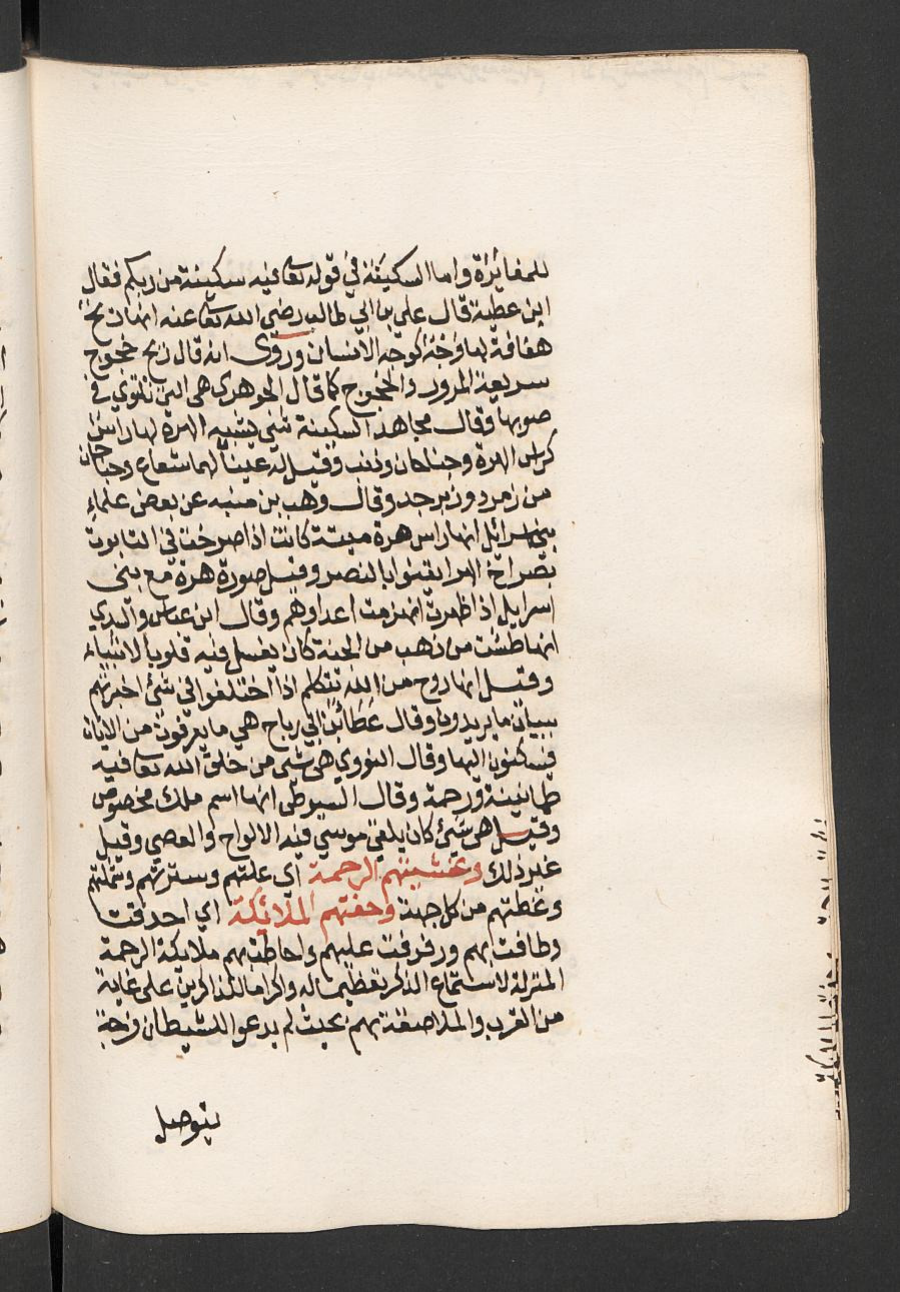 للمغائرة واما السكينة في قوله تعا فيه سكينة من ربكم فقال
ابن عطية قال علي بن ابي طالب رضي الله تعا عنه انها ريح
هفافة لها وجه كوجه الانسان وروى انه قال ريح خجوج
سريعة المرور والخجوج كما قال الجوهرى هي التي تلتوي في
صوبها وقال مجاهد السكينة شئ يشبه الهرة لها راس
كراس الهرة وجناحان وذنب وقيل له عينان لهما شعاع وجناحان
من زمرد وزبرجد وقال وهب بن منبه عن بعض علماء
بني اسرائل انها راس هرة ميتة كانت اذا صرخت في التابوت
بصراخ الهر ايقنوا بالنصر وقيل صورة هرة مع بنى
اسرايل اذا ظهرت انهزمت اعداوهم وقال ابن عباس والسدي
انها طشت من ذهب من الجنة كان يغسل فيه قلوب الانبياء
وقيل انها روح من الله تتكلم اذا اختلفوا في شئ اخبرتهم
ببيان ما يريدون وقال عطا بن ابي رباح هي ما يعرفون من الايات
فيسكنون اليها وقال النووي هي شئ من خلق الله تعا فيه
طمانينة ورحمة وقال السيوطى انها اسم ملك مخصوص
وقيل هي شئ كان يلقي موسي فيه الالواح والعصي وقيل
غير ذلك وغشيتهم الرحمة اي علتهم وسترتهم وشملتهم
وغطتهم من كل جهة وحفتهم الملائكة اي احدقت
وطافت بهم ورفرفت عليهم واحاطت بهم ملايكة الرحمة
المنزلة لاستماع الذكر تعظيما له واكراما للذاكرين على غاية
من القرب والملاصقة بهم بحيث لم يدعوا للشيطان فرجة
يتوصل